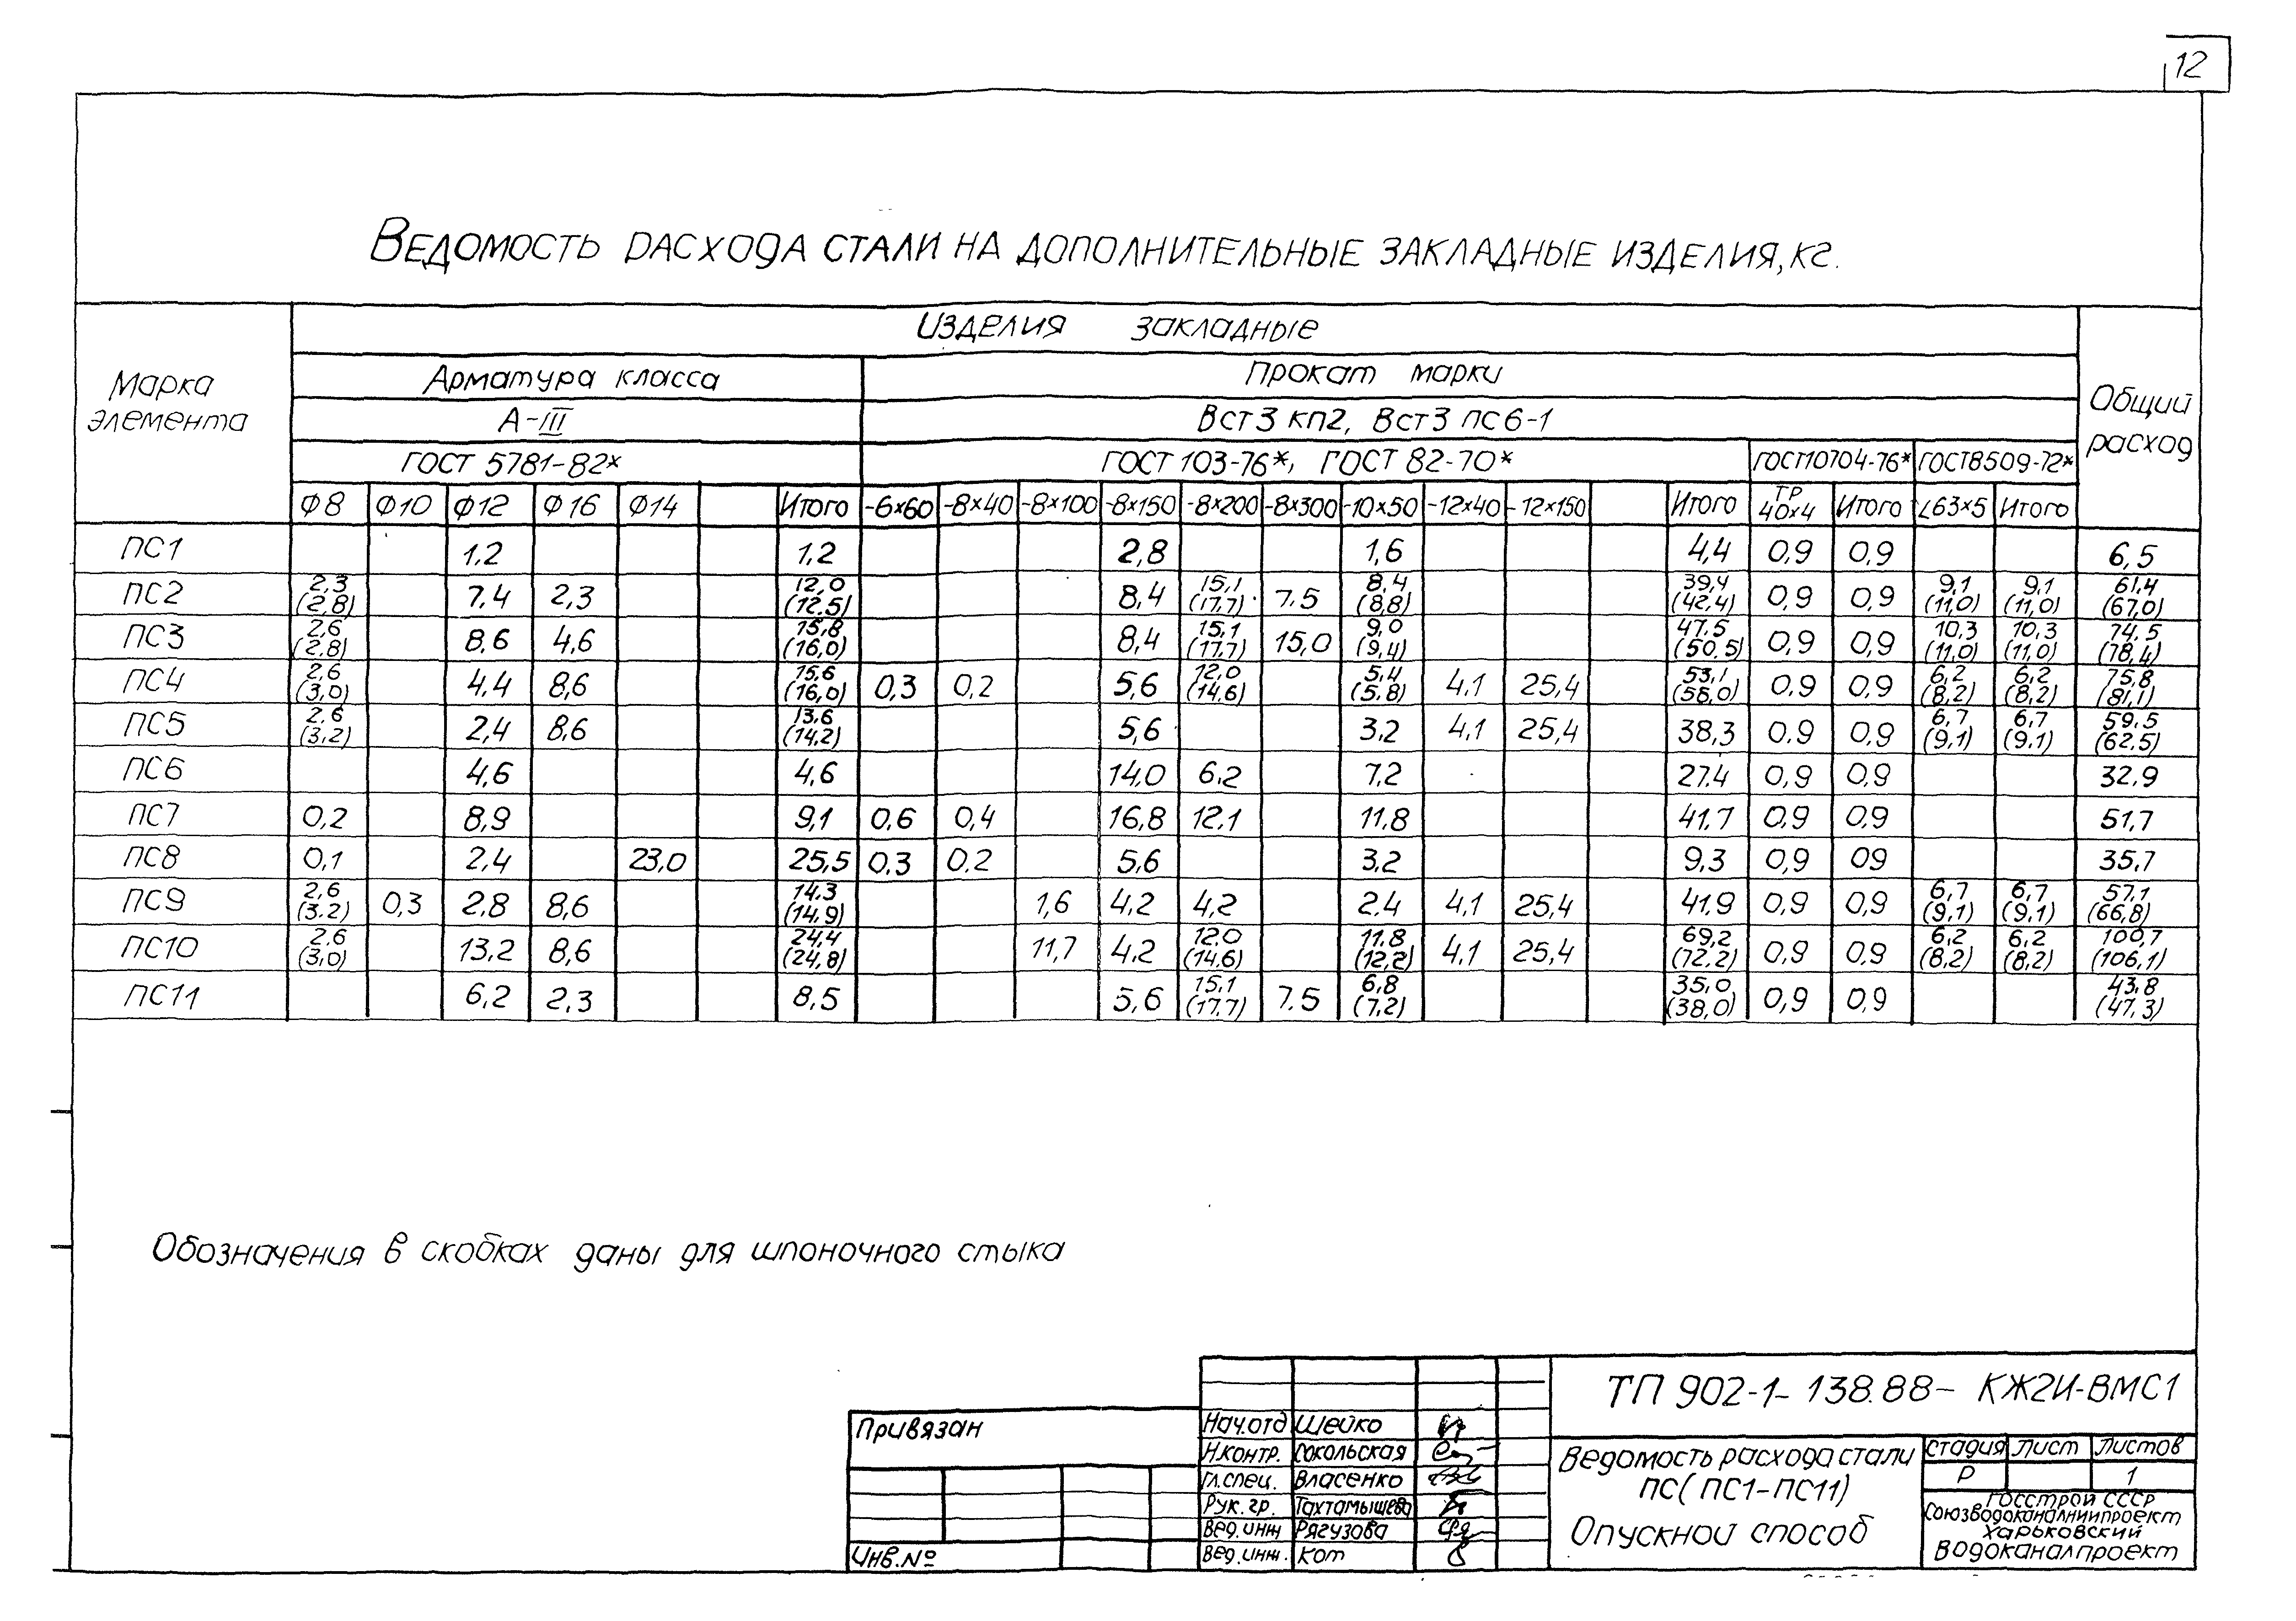 12
Ведомость расхода стали на дополнительные закладные изделия, кг.
Марка элемента
Изделия закладные
Общий расход
Арматура класса
Прокат марки
А-III
Вст3 кп2, Вст3 пс6-1
ГОСТ 5781-82*
ГОСТ 103-76*, ГОСТ 82-70*
ГОСТ10704-76*
ГОСТ8509-72*
Ф8 Ф10 Ф12 Ф16 Ф14 Итого -6×60 -8×40 -8×100 -8×150 -8×200 -8×300 -10×50 -12×40 -12×150 Итого ТР 40×4 Итого ∠63×5 Итого
ПС1 1,2 1,2 2,8 1,6 4,4 0,9 0,9 6,5
ПС2 2,3 (2,8) 7,4 2,3 12,0 (12.5) 8,4 15,1 (17,7) 7.5 8,4 (8,8) 39,4 (42,4) 0,9 0,9 9,1 (11,0) 9,1 (11,0) 61,4 (67,0)
ПС3 2,6 (2,8) 8,6 4,6 15,8 (16,0) 8,4 15,1 (17,7) 15,0 9,0 (9,4) 47,5 (50,5) 0,9 0,9 10,3 (11,0) 10,3 (11,0) 74,5 (78,4)
ПС4 2,6 (3,0) 4,4 8,6 15,6 (16,0) 0,3 0,2 5,6 12,0 (14,6) 5,4 (5,8) 4,1 25,4 53,1 (56,0) 0,9 0,9 6,2 (8,2) 6,2 (8,2) 75,8 (81,1)
ПС5 2,6 (3,2) 2,4 8,6 13,6 (14,2) 5,6 3,2 4,1 25,4 38,3 0.9 0,9 6,7 (9,1) 6,7 (9,1) 59.5 (62.5)
ПС6 4,6 4,6 14,0 6,2 7,2 27.4 0,9 0,9 32,9
ПС7 0,2 8,9 9,1 0,6 0,4 16,8 12,1 11,8 41,7 0,9 0,9 51,7
ПС8 0,1 2,4 23,0 25,5 0,3 0,2 5,6 3,2 9,3 0,9 09 35,7
ПС9 2,6 (3.2) 0,3 2,8 8,6 14,3 (14,9) 1,6 4,2 4,2 2,4 4,1 25,4 41,9 0,9 0,9 6,7 (9,1) 6,7 (9,1) 57,1 (66,8)
ПС10 2,6 (3,0) 13,2 8,6 24,4 (24,8) 11,7 4,2 12,0 (14,6) 11,8 (12,2) 4,1 25,4 69,2 (72,2) 0,9 0,9 6,2 (8,2) 6,2 (8,2) 100,7 (106,1)
ПС11 6,2 2,3 8,5 5,6 15,1 (17,7) 7.5 6,8 (7,2) 35,0 (38,0) 0,9 0,9 43,8 (47,3)
Обозначения в скобках даны для шпоночного стыка
Привязан
Инв.№
Нач.отд Шейко
Н.контр. Сокольская
Гл.спец. Власенко
Рук. гр. Тахтамышева
Вед.инж Рягузова
Вед.инж. Кот
ТП 902-1-138.88- КЖ2И-ВМС1
Ведомость расхода стали
ПС(ПС1-ПС11)
Опускной способ
Стадия Лист Листов
Р 1
Госстрой СССР
Союзводоканалниипроект
Харьковский
Водоканалпроект